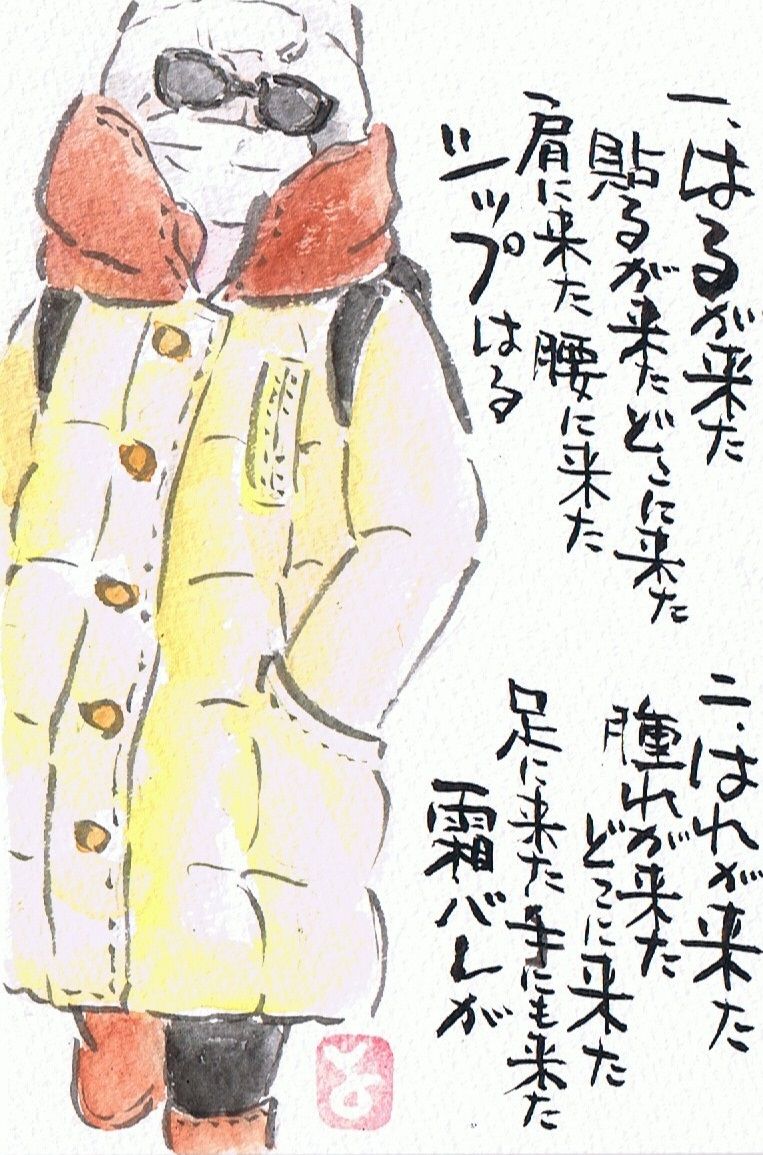 一、はるが来た
貼るが来たどこに来た
肩に来た 腰に来た
シップはる
二、はれが来た
腫れが来た
どこに来た
足に来た 手にも来た
霜バレが